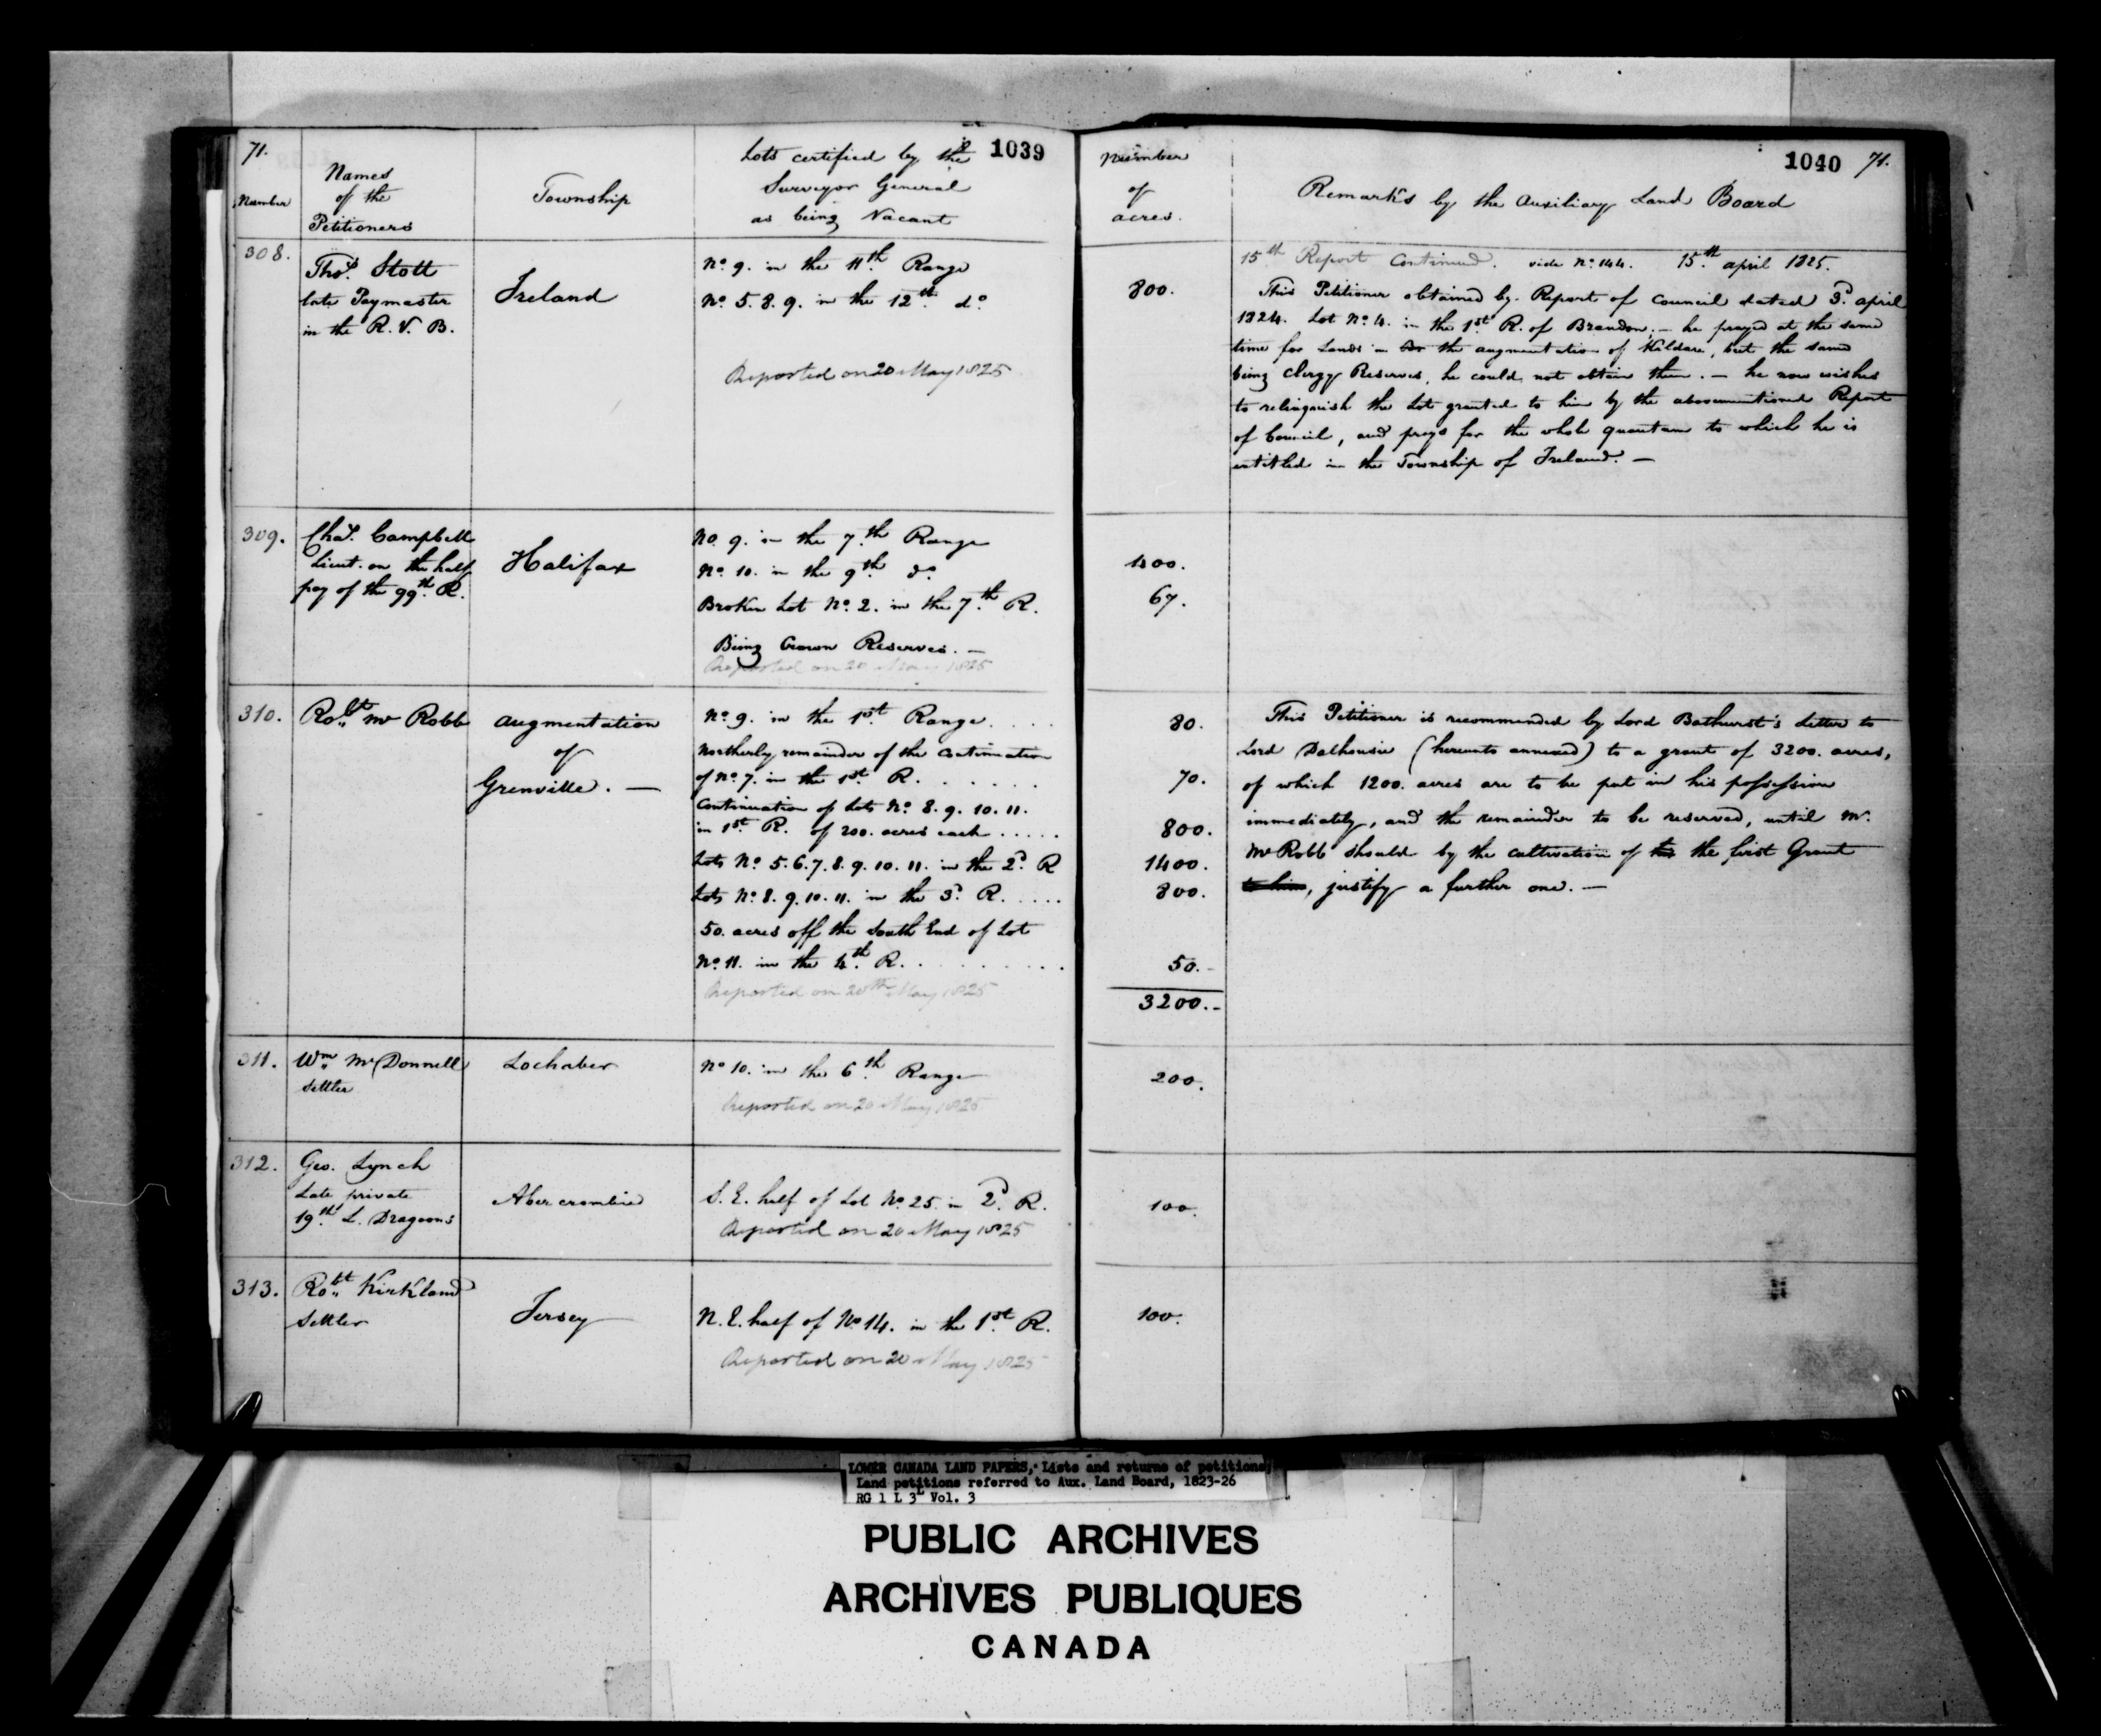 71.
1039
Number
Names
of the
Petitioners
Township
Lots certified by the
Surveyor General
as being Vacant
308.
Thos. Stott
late Paymaster
in the R. V. B.
Ireland
No. 9. in the 11th Range
No. 5. 8. 9. in the 12th do.
Reported on 20 May 1825
309.
Chas. Campbell
Lieut. on the half
pay of the 99th R.
Halifax
No. 9. in the 7th Range
No. 10. in the 9th do.
Broken Lot No. 2. in the 7th R.
Being Crown Reserves. —
Reported on 20 May 1825
310.
Robt. Mc Robb
Augmentation
of
Grenville. —
No. 9. in the 1st Range . . . .
Northerly remainder of the continuation
of No. 7. in the 1st R. . . . . .
Continuation of Lots No. 8. 9. 10. 11.
in 1st R. of 200. acres each . . . . .
Lots No. 5. 6. 7. 8. 9. 10. 11. in the 2d. R
Lots No. 8. 9. 10. 11. in the 3d. R. . . . .
50. acres off the South End of Lot
No. 11. in the 4th R. . . . . . . .
Reported on 20th May 1825
311.
Wm. McDonnell
Settler
Lochaber
No. 10. in the 6th Range
Reported on 20 May 1825
312.
Geo. Lynch
Late private
19th L. Dragoons
Abercrombie
S. E. half of Lot No. 25. in 2d. R.
Reported on 20 May 1825
313.
Robt. Kirkland
Settler
Jersey
N. E. half of No. 14. in the 1st R.
Reported on 20 May 1825
Number
of
acres.
1040 71.
Remarks by the Auxiliary Land Board
15th Report Continued. vide No. 144. 15th april 1825.
800.
This Petitioner obtained by Report of Council dated 3d. april
1824. Lot No. 4. in the 1st R. of Brandon. — he prayed at the same
time for Lands in the augmentation of Kildare, but the same
being Clergy Reserves, he could not obtain them. — he now wishes
to relinquish the Lot granted to him by the abovementioned Report
of Council, and prays for the whole quantum to which he is
entitled in the Township of Ireland. —
400.
67.
80.
70.
800.
1400.
800.
50.-
3200.-
This Petitioner is recommended by Lord Bathurst's Letter to
Lord Dalhousie (hereunto annexed) to a grant of 3200. acres,
of which 1200. acres are to be put in his possession
immediately, and the remainder to be reserved, until Mr.
McRobb should by the cultivation of the first Grant
to him, justify a further one. —
200.
100.
100.
LOWER CANADA LAND PAPERS, Lists and returns of petitions;
Land petitions referred to Aux. Land Board, 1823-26
RG 1 L 3L Vol. 3
PUBLIC ARCHIVES
ARCHIVES PUBLIQUES
CANADA